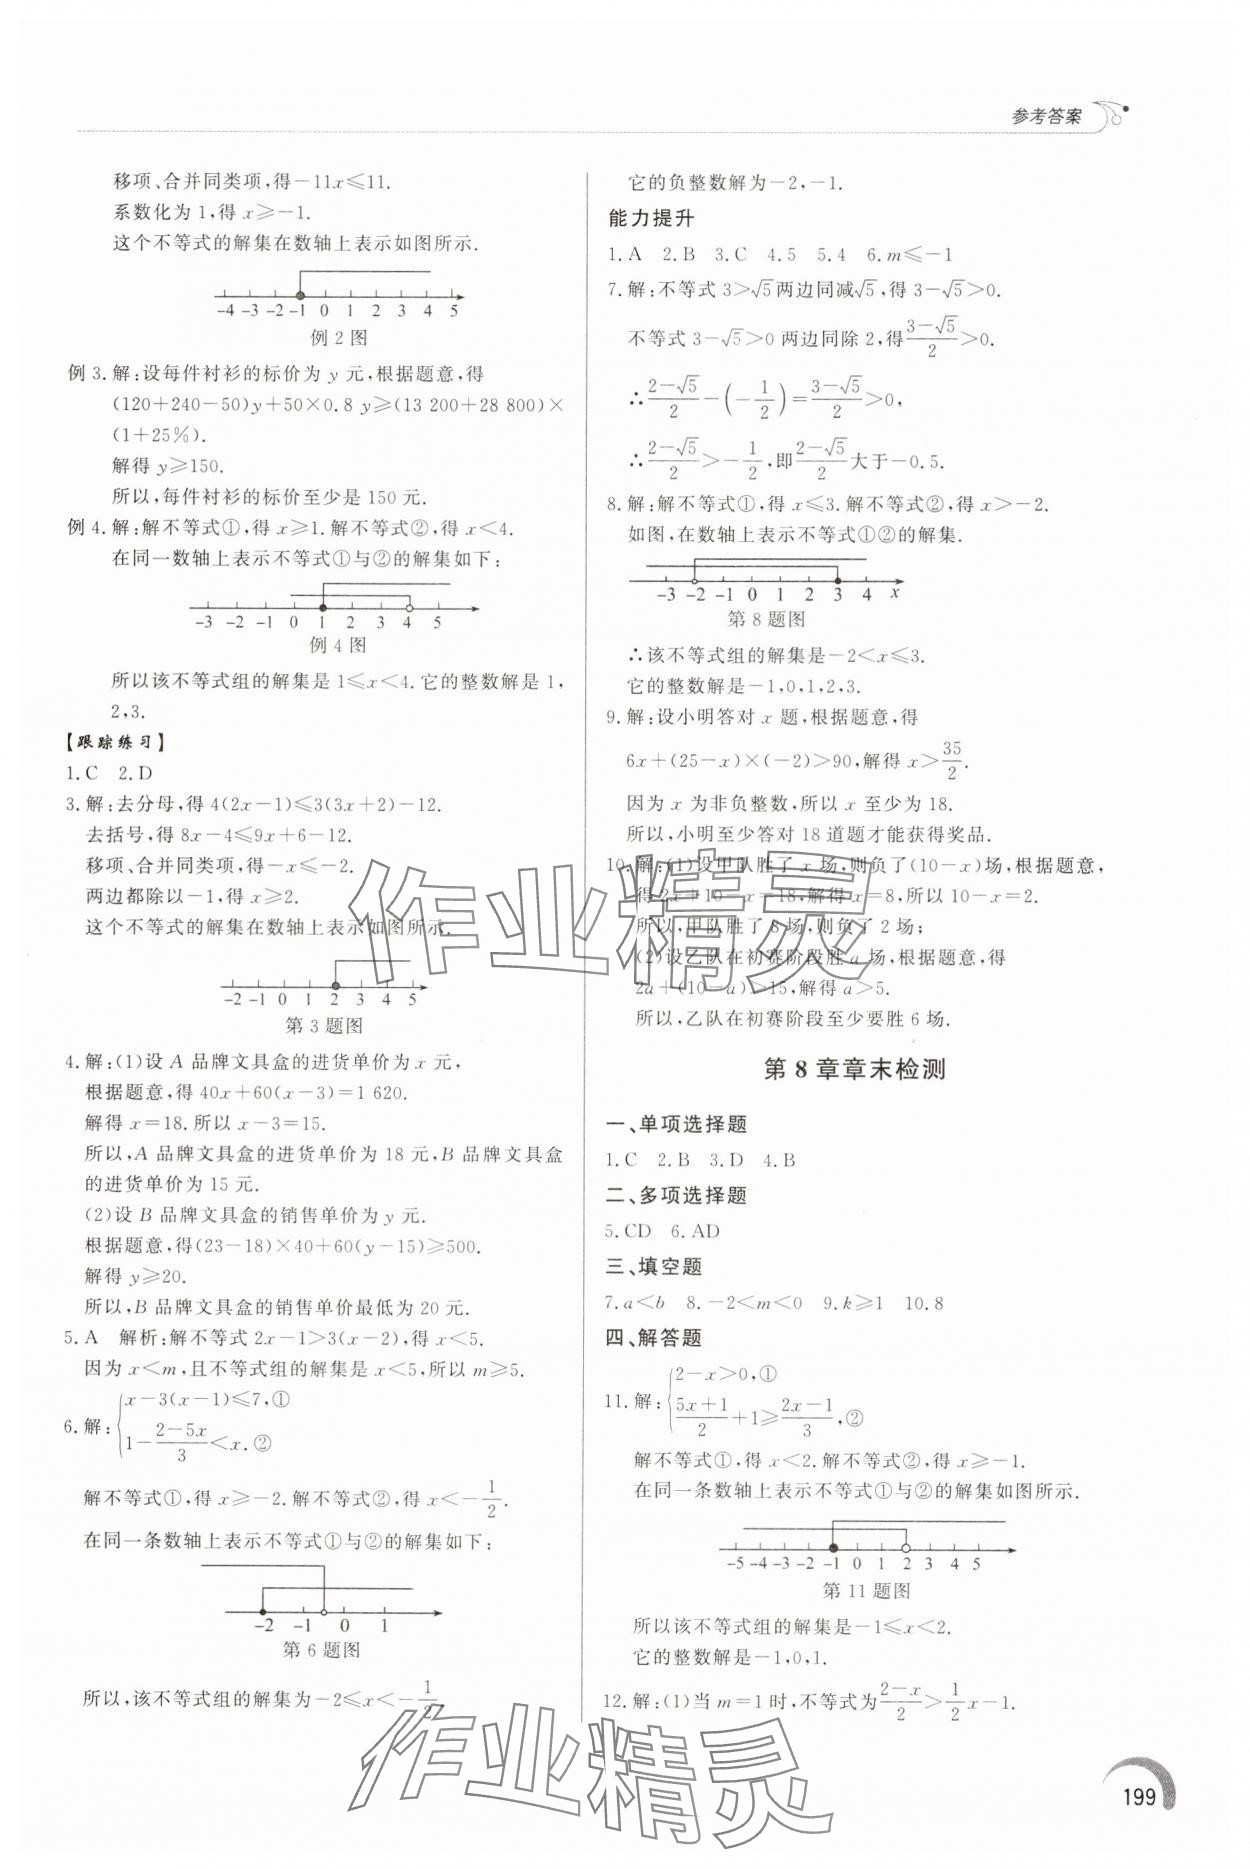 参考答案
移项、合并同类项,得－11x≤11.
系数化为 1,得 x≥－1.
这个不等式的解集在数轴上表示如图所示.
-4 -3 -2 -1 0 1 2 3 4 5
例 2 图
例 3. 解:设每件衬衫的标价为 y 元,根据题意,得
(120＋240－50)y＋50×0.8 y≥(13 200＋28 800)×
(1＋25%).
解得 y≥150.
所以,每件衬衫的标价至少是 150 元.
例 4. 解:解不等式①,得 x≥1. 解不等式②,得 x＜4.
在同一数轴上表示不等式①与②的解集如下:
-3 -2 -1 0 1 2 3 4 5
例 4 图
所以该不等式组的解集是 1≤x＜4. 它的整数解是 1,
2,3.
【跟踪练习】
1. C 2. D
3. 解:去分母,得 4(2x－1)≤3(3x＋2)－12.
去括号,得 8x－4≤9x＋6－12.
移项、合并同类项,得－x≤－2.
两边都除以－1,得 x≥2.
这个不等式的解集在数轴上表示如图所示.
-2 -1 0 1 2 3 4 5
第 3 题图
4. 解:(1)设 A 品牌文具盒的进货单价为 x 元,
根据题意,得 40x＋60(x－3)＝1 620.
解得 x＝18. 所以 x－3＝15.
所以,A 品牌文具盒的进货单价为 18 元,B 品牌文具盒
的进货单价为 15 元.
(2)设 B 品牌文具盒的销售单价为 y 元.
根据题意,得(23－18)×40＋60(y－15)≥500.
解得 y≥20.
所以,B 品牌文具盒的销售单价最低为 20 元.
5. A 解析:解不等式 2x－1＞3(x－2),得 x＜5.
因为 x＜m,且不等式组的解集是 x＜5,所以 m≥5.
6. 解:{x－3(x－1)≤7,①
1－(2－5x)/3＜x.②
解不等式①,得 x≥－2. 解不等式②,得 x＜－1/2.
在同一条数轴上表示不等式①与②的解集如下:
-2 -1 0 1
第 6 题图
所以,该不等式组的解集为－2≤x＜－1/2.
它的负整数解为－2,－1.
能力提升
1. A 2. B 3. C 4. 5 5. 4 6. m≤－1
7. 解:不等式 3＞√5两边同减√5,得 3－√5＞0.
不等式 3－√5＞0 两边同除 2,得(3－√5)/2＞0.
∴(2－√5)/2－(－1/2)＝(3－√5)/2＞0,
∴(2－√5)/2＞－1/2,即(2－√5)/2大于－0.5.
8. 解:解不等式①,得 x≤3. 解不等式②,得 x＞－2.
如图,在数轴上表示不等式①②的解集.
-3 -2 -1 0 1 2 3 4 x
第 8 题图
∴该不等式组的解集是－2＜x≤3.
它的整数解是－1,0,1,2,3.
9. 解:设小明答对 x 题,根据题意,得
6x＋(25－x)×(－2)＞90,解得 x＞35/2.
因为 x 为非负整数,所以 x 至少为 18.
所以,小明至少答对 18 道题才能获得奖品.
10. 解:(1)设甲队胜了 x 场,则负了(10－x)场,根据题意,
得 2x＋10－x＝18,解得 x＝8,所以 10－x＝2.
所以,甲队胜了 8 场,则负了 2 场;
(2)设乙队在初赛阶段胜 a 场,根据题意,得
2a＋(10－a)＞15,解得 a＞5.
所以,乙队在初赛阶段至少要胜 6 场.
第 8 章章末检测
一、单项选择题
1. C 2. B 3. D 4. B
二、多项选择题
5. CD 6. AD
三、填空题
7. a＜b 8. －2＜m＜0 9. k≥1 10. 8
四、解答题
11. 解:{2－x＞0,①
(5x＋1)/2＋1≥(2x－1)/3,②
解不等式①,得 x＜2. 解不等式②,得 x≥－1.
在同一条数轴上表示不等式①与②的解集如图所示.
-5 -4 -3 -2 -1 0 1 2 3 4 5
第 11 题图
所以该不等式组的解集是－1≤x＜2.
它的整数解是－1,0,1.
12. 解:(1)当 m＝1 时,不等式为(2－x)/2＞1/2x－1.
199
作业精灵
作业精灵